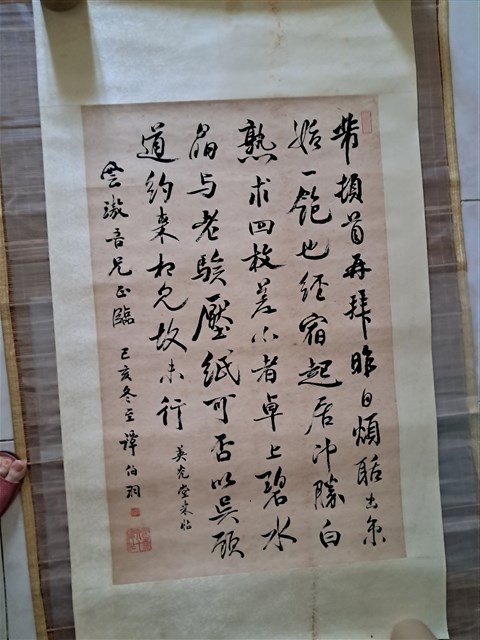 芾頓首再拜昨日煩聒出京
始一飽也經宿起居冲勝白
熟求四枚差小者卓上碧水
晶與老駿壓紙可否以吳頭
道約來相見故未行 英光堂米帖
雲吾兄正臨 己亥冬至 譚伯羽